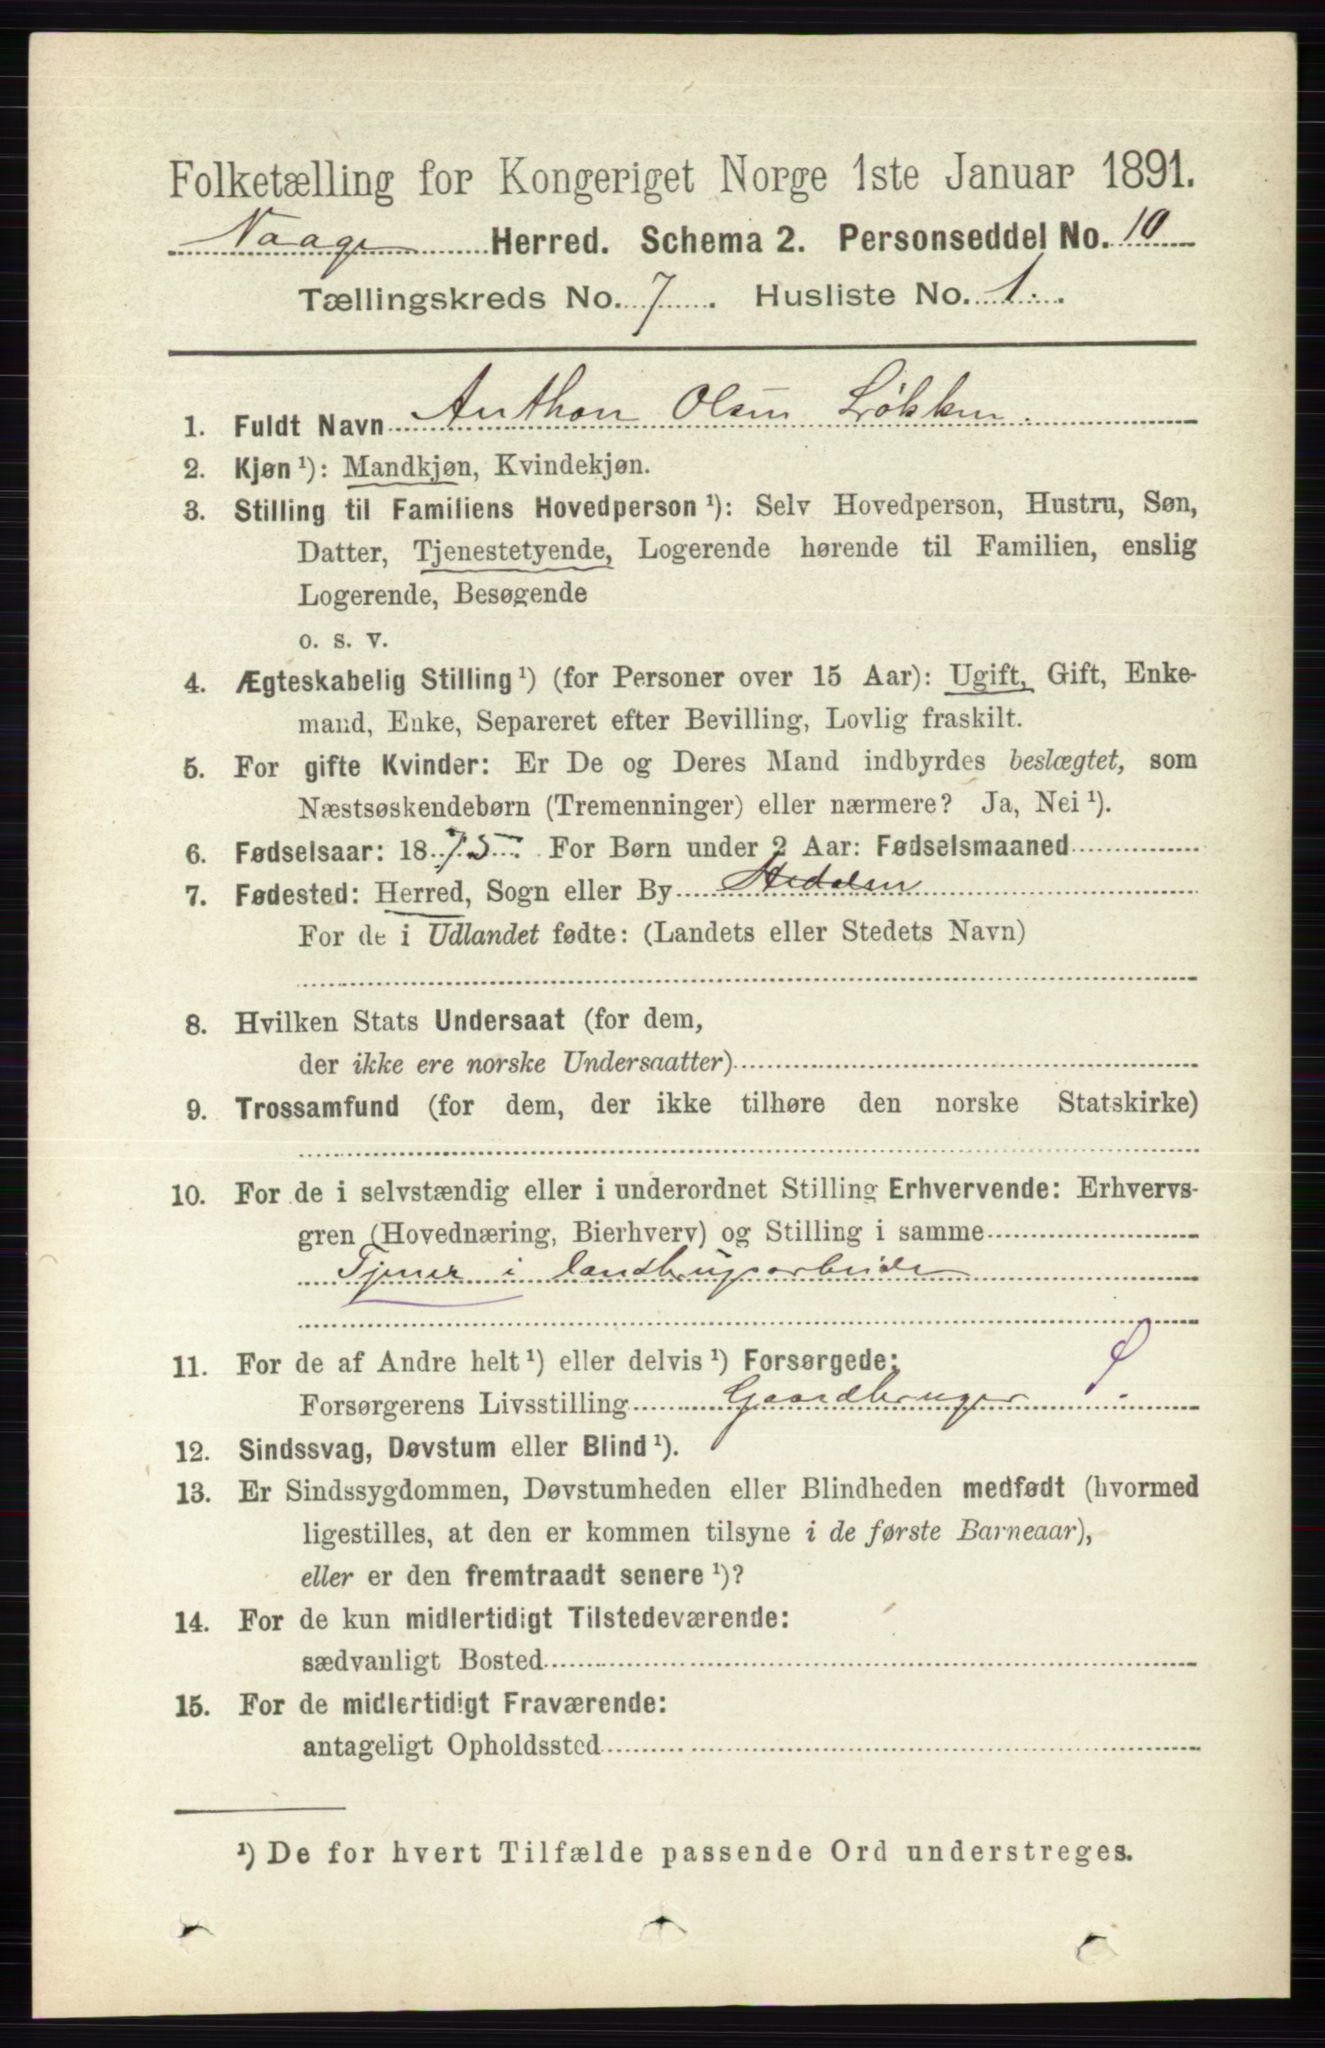 Folketælling for Kongeriget Norge 1ste Januar 1891.
Vaage Herred. Schema 2. Personseddel No. 10
Tællingskreds No. 7. Husliste No. 1.
1. Fuldt Navn Anthon Olsen Løkken.
2. Kjøn ¹): Mandkjøn, Kvindekjøn.
3. Stilling til Familiens Hovedperson ¹): Selv Hovedperson, Hustru, Søn,
Datter, Tjenestetyende, Logerende hørende til Familien, enslig
Logerende, Besøgende
o. s. v.
4. Ægteskabelig Stilling ¹) (for Personer over 15 Aar): Ugift, Gift, Enke-
mand, Enke, Separeret efter Bevilling, Lovlig fraskilt.
5. For gifte Kvinder: Er De og Deres Mand indbyrdes beslægtet, som
Næstsøskendebørn (Tremenninger) eller nærmere? Ja, Nei ¹).
6. Fødselsaar: 1875. For Børn under 2 Aar: Fødselsmaaned
7. Fødested: Herred, Sogn eller By Hedalen
For de i Udlandet fødte: (Landets eller Stedets Navn)
8. Hvilken Stats Undersaat (for dem,
der ikke ere norske Undersaatter)
9. Trossamfund (for dem, der ikke tilhøre den norske Statskirke)
10. For de i selvstændig eller i underordnet Stilling Erhvervende: Erhvervs-
gren (Hovednæring, Bierhverv) og Stilling i samme
Tjener i landbrugsarbeide
11. For de af Andre helt ¹) eller delvis ¹) Forsørgede:
Forsørgerens Livsstilling Gaardbruger
12. Sindssvag, Døvstum eller Blind ¹).
13. Er Sindssygdommen, Døvstumheden eller Blindheden medfødt (hvormed
ligestilles, at den er kommen tilsyne i de første Barneaar),
eller er den fremtraadt senere ¹)?
14. For de kun midlertidigt Tilstedeværende:
sædvanligt Bosted
15. For de midlertidigt Fraværende:
antageligt Opholdssted
¹) De for hvert Tilfælde passende Ord understreges.